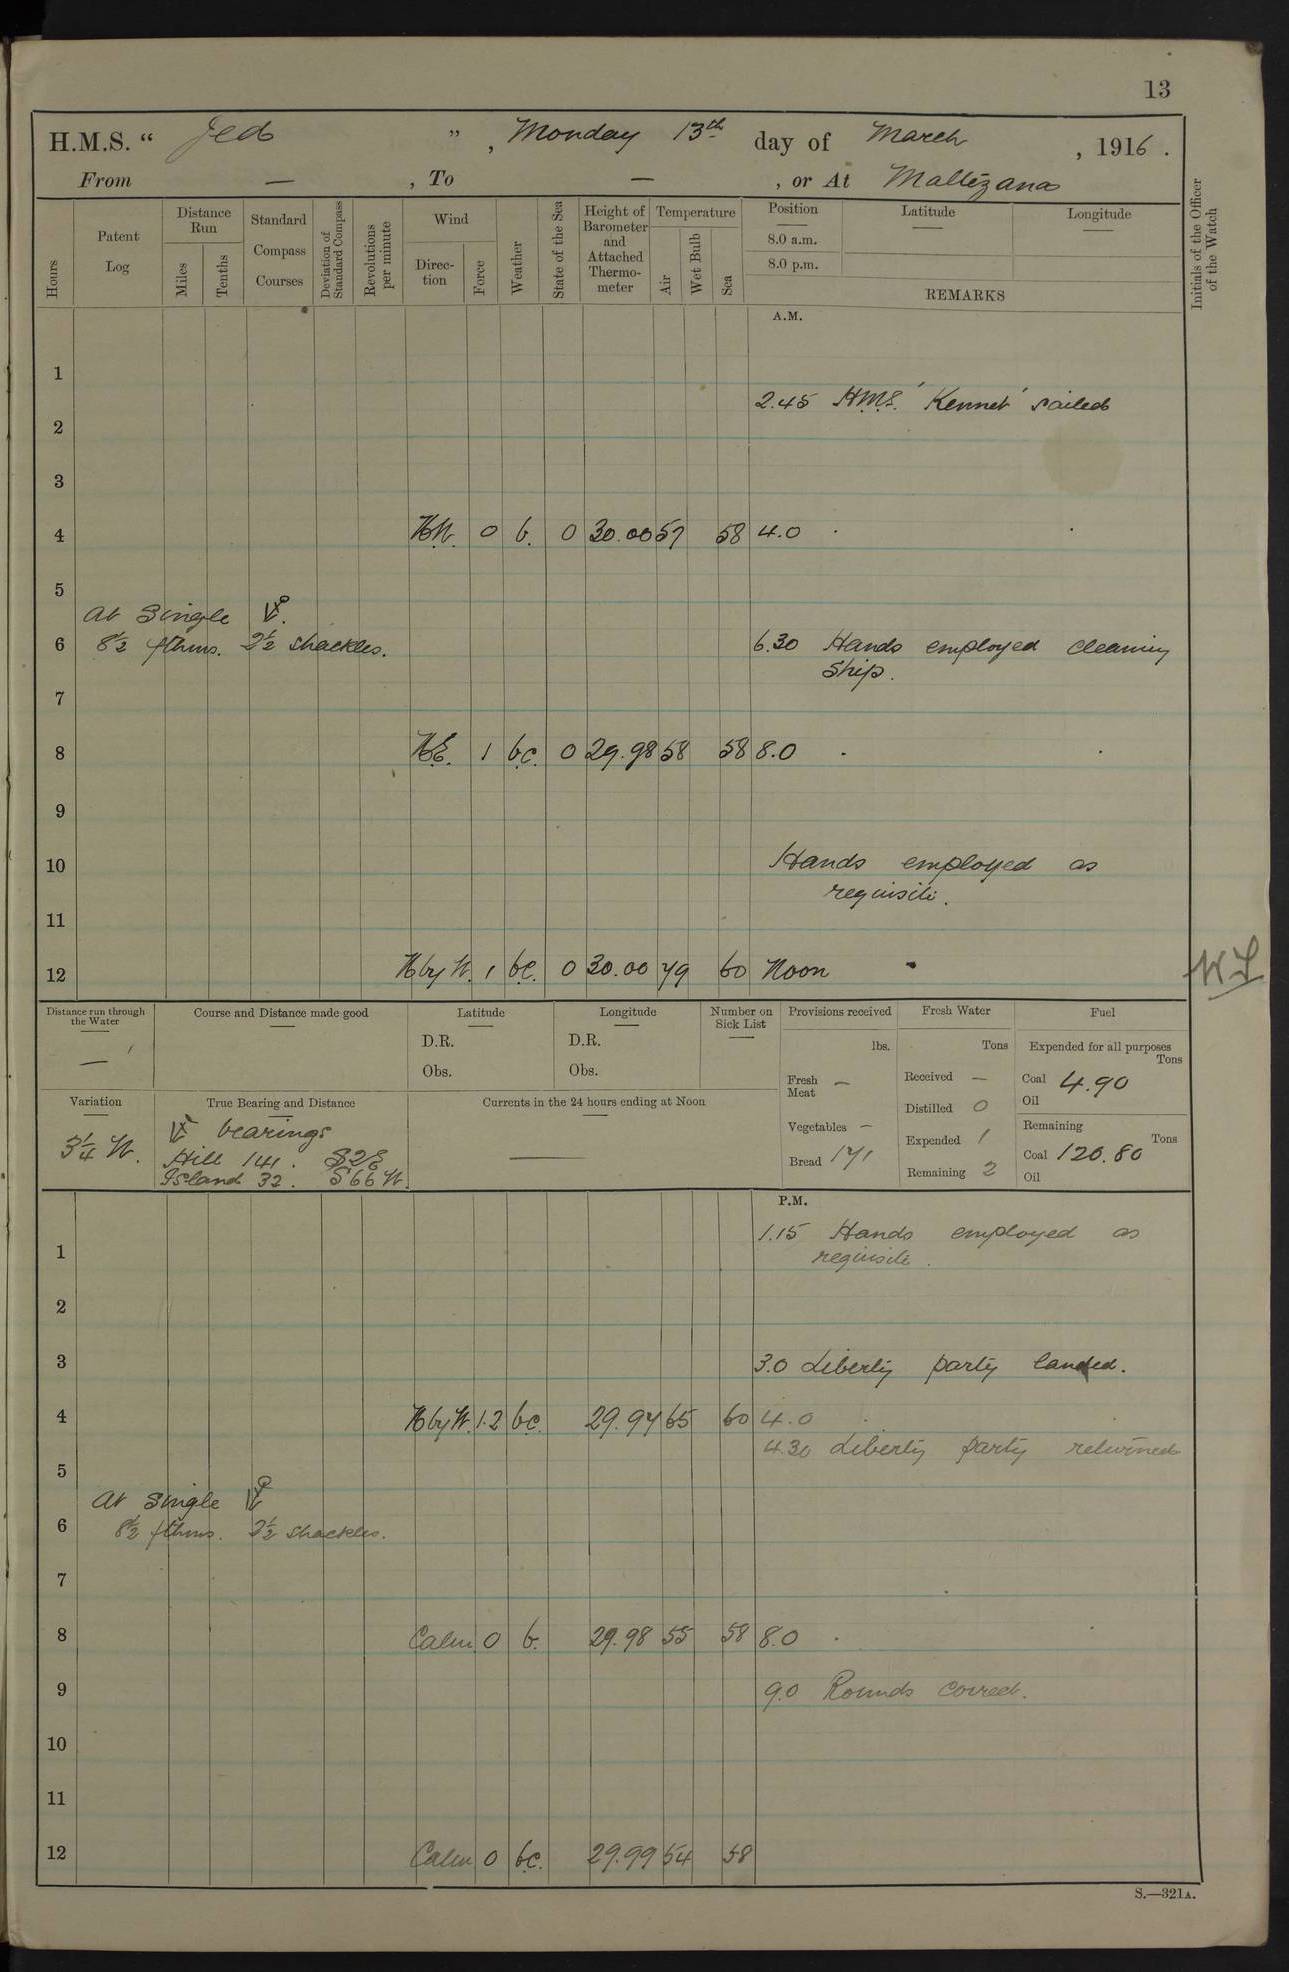 13
H.M.S. “ Jed ”, Monday 13th day of March, 1916.
From — , To — , or At Maltezana
Hours
Patent Log
Distance Run
Miles
Tenths
Standard Compass Courses
Deviation of Standard Compass
Revolutions per minute
Wind
Direction
Force
Weather
State of the Sea
Height of Barometer and Attached Thermometer
Temperature
Air
Wet Bulb
Sea
Position
Latitude
Longitude
8.0 a.m.
8.0 p.m.
REMARKS
Initials of the Officer of the Watch
A.M.
1
2.45 H.M.S. 'Kennet' sailed
2
3
4 N.W. 0 b. 0 30.00 57 58 4.0
5
At Single
6 8½ fthms. 2½ shackles. 6.30 Hands employed cleaning
ship.
7
8 N.E. 1 b.c. 0 29.98 58 58 8.0
9
10 Hands employed as
requisite.
11
12 N by W. 1 b.c. 0 30.00 79 60 Noon
Distance run through the Water
—
Course and Distance made good
Latitude
D.R.
Obs.
Longitude
D.R.
Obs.
Number on Sick List
Provisions received
lbs.
Fresh Meat —
Vegetables —
Bread 171
Fresh Water
Tons
Received —
Distilled 0
Expended 1
Remaining 2
Fuel
Expended for all purposes
Tons
Coal 4.90
Oil
Remaining
Tons
Coal 120.80
Oil
Variation
3¼ W.
True Bearing and Distance
bearings
Hill 141. S2E
Island 32. S66W.
Currents in the 24 hours ending at Noon
—
P.M.
1.15 Hands employed as
1 requisite.
2
3 3.0 Liberty party landed.
4 N by W. 1.2 b.c. 29.97 65 60 4.0
4.30 Liberty party returned
5
At single
6 8½ fthms. 2½ shackles.
7
8 Calm 0 b. 29.98 55 58 8.0
9 9.0 Rounds correct.
10
11
12 Calm 0 b.c. 29.99 54 58
S.—321A.